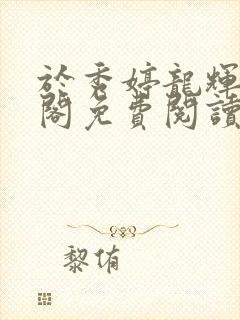 於秀婷龍輝
閣免費閱讀
黎侑